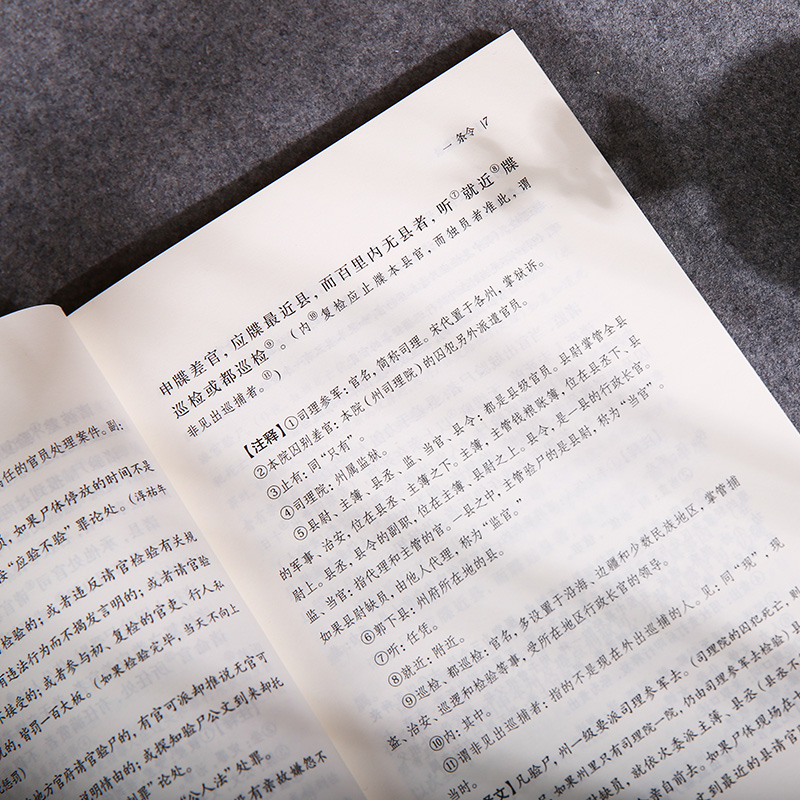 任的官员处理案件。副:
如果尸体停放的时间不是
“应验不验”罪论处。(淳祐年
检验的;或者违反请官检验有关规
有违法行为而不揭发言明的;或者请官验
接受的;或者参与初、复检的官吏、行人私
的,皆罚一百大板。(如果检验完毕,当天不向上
地方官府请官验尸的,有官可派却推说无官可
说明情由的;或探知验尸公文到来却托
罪”论处。
“公人法”处罪。
没有亲故嫌怨不
一 条令 17
申牒差官,应牒最近县,而百里内无县者,听⑦就近⑧牒
巡检或都巡检⑨。(内⑩复检应止牒本县官,而独员者准此,谓
非见出巡捕者。⑪)
【注释】①司理参军:官名,简称司理。宋代置于各州,掌狱诉。
②本院囚别差官:本院(州司理院)的囚犯另外派遣官员。
③止有:同“只有”。
④司理院:州属监狱。
⑤县尉、主簿、县丞、监、当官、县令:都是县级官员。县尉掌管全县
的军事、治安,位在县丞、主簿之下。主簿,主管钱粮账簿,位在县丞下、县
尉上。县丞,县令的副职,位在主簿、县尉之上。县令,是一县的行政长官。
监、当官:指代理和主管的官。一县之中,主管验尸的是县尉,称为“当官”。
如果县尉缺员,由他人代理,称为“监官”。
⑥郭下县:州府所在地的县。
⑦听:任凭。
⑧就近:附近。
⑨巡检、都巡检:官名,多设置于沿海、边疆和少数民族地区,掌管捕
盗、治安、巡逻和检验等事,受所在地区行政长官的领导。
⑩内:其中。
⑪谓非见出巡捕者:指的不是现在外出巡捕的人。见:同“现”,现
当时。
文】凡验尸,州一级要派司理参军去。(司理院的囚犯死亡,则
如果州里只有司理院一院,仍由司理参军去检验)县
缺员,就依次委派主簿、县丞(县丞不
亲自前去。如果尸体现场在
文到最近的县请官